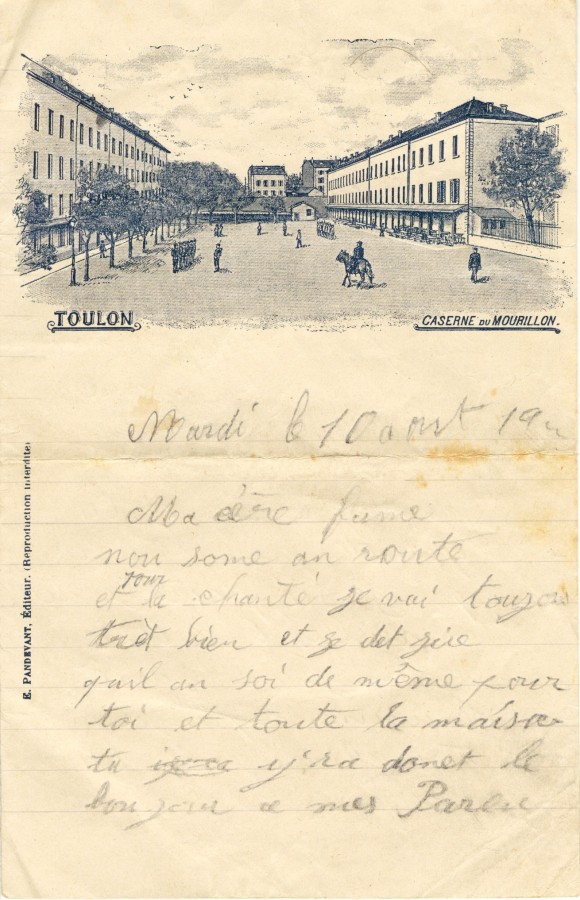 TOULON
CASERNE DU MOURILLON.
E. PANDEVANT, Éditeur. (Reproduction interdite)
Mardi le 10 aout 19
Ma cère fame
nou some an route
et tour la chanté je vai toujour
trèt bien et je det zire
quil an soi de même pour
toi et toute la maison
tu y'ra donet le
bonjour a mes Paren